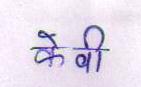 के वी